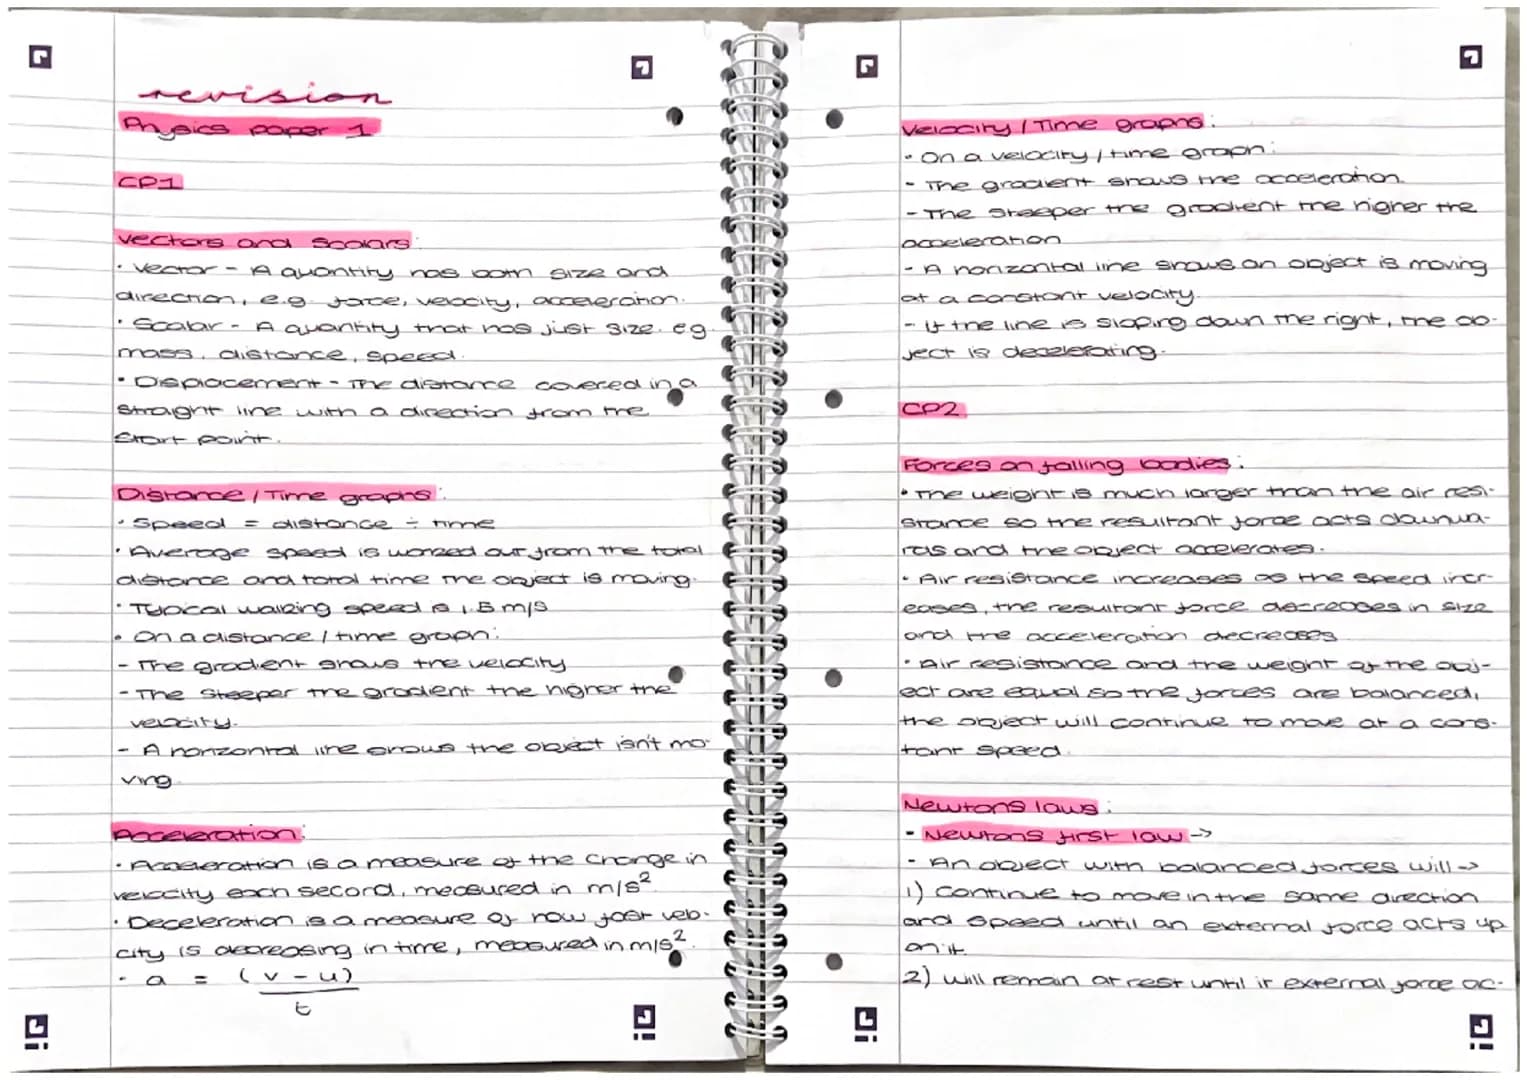 revision
Physics paper 1
CP1
Vectors and Scalars:
· Vector - A quantity has both size and
direction, e.g. force, velocity, acceleration.
· Scalar - A quantity that has just size. eg.
mass, distance, speed.
· Displacement - The distance covered in a
straight line with a direction from the
start point.
Distance / Time graphs:
· Speed = distance ÷ time
· Average speed is worked out from the total
distance and total time the object is moving.
· Typical walking speed is 1.5 m/s
· On a distance / time graph:
- The gradient shows the velocity
- The steeper the gradient the higher the
velocity.
- A horizontal line shows the object isn't mo-
ving.
Acceleration:
· Acceleration is a measure of the change in
velocity each second, measured in m/s².
· Deceleration is a measure of how fast velo-
city is decreasing in time, measured in m/s².
· a = (v - u)
t
Velocity / Time graphs:
· On a velocity / time graph:
- The gradient shows the acceleration.
- The steeper the gradient the higher the
acceleration
- A horizontal line shows an object is moving
at a constant velocity.
- If the line is sloping down the right, the ob-
ject is decelerating.
CP2
Forces on falling bodies:
· The weight is much larger than the air resi-
stance so the resultant force acts downwa-
rds and the object accelerates.
· Air resistance increases as the speed incr-
eases, the resultant force decreases in size
and the acceleration decreases
· Air resistance and the weight of the obj-
ect are equal so the forces are balanced,
the object will continue to move at a cons-
tant speed.
Newtons laws:
- Newtons first law ->
- An object with balanced forces will ->
1) continue to move in the same direction
and speed until an external force acts up
on it
2) will remain at rest until it external force ac-